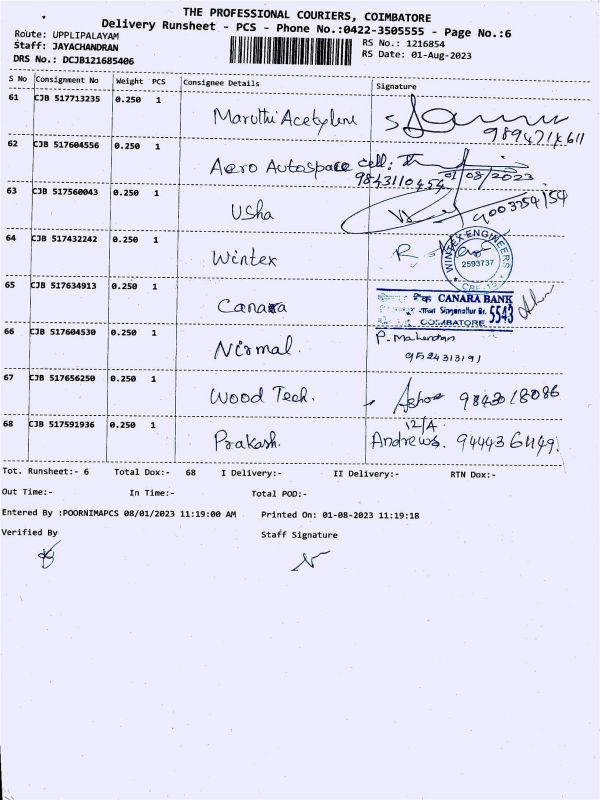 THE PROFESSIONAL COURIERS, COIMBATORE
Delivery Runsheet - PCS - Phone No.:0422-3505555 - Page No.:6
Route: UPPLIPALAYAM
Staff: JAYACHANDRAN
DRS No.: DCJB121685406
RS No.: 1216854
RS Date: 01-Aug-2023
S No Consignment No Weight PCS Consignee Details Signature
61 CJB 517713235 0.250 1 Maruthi Acetylene
62 CJB 517604556 0.250 1 Aero Autospace cell:
9843110454 01/08/2023
63 CJB 517560043 0.250 1 Usha
64 CJB 517432242 0.250 1 Wintex R
WINTEX ENGINEERS
2593737
65 CJB 517634913 0.250 1 Canara
CANARA BANK
Singanallur Br. 5543
COIMBATORE
66 CJB 517604530 0.250 1 Nirmal. P. Mahendran
9524313191
67 CJB 517656250 0.250 1 Wood Tech. Ashok 9843018086
68 CJB 517591936 0.250 1 Prakash. 12/A
Andrews. 9444361149.
Tot. Runsheet:- 6 Total Dox:- 68 I Delivery:- II Delivery:- RTN Dox:-
Out Time:- In Time:- Total POD:-
Entered By :POORNIMAPCS 08/01/2023 11:19:00 AM Printed On: 01-08-2023 11:19:18
Verified By Staff Signature